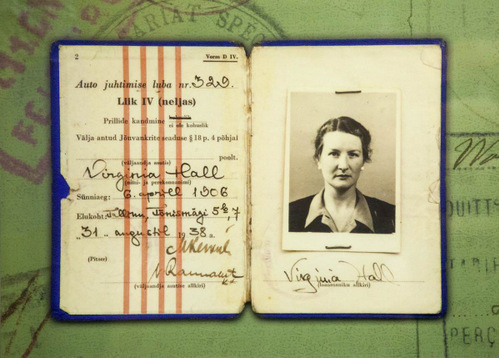 2
Vorm D IV.
Auto juhtimise luba nr. 329.
Liik IV (neljas)
Prillide kandmine
ei ole kohuslik
Välja antud Jõuvankrite seaduse § 18 p. 4 põhjal
(väljaandja asutis)
poolt.
Virginia Hall
(nimi- ja perekonnanimi)
Sünniaeg: 6. aprill 1906
Elukoht: Tallinn, Tõnismägi
"31" augustil 1938 a.
(Pitser)
(väljaandja asutise allkiri)
Virginia Hall
(loaomaniku allkiri)